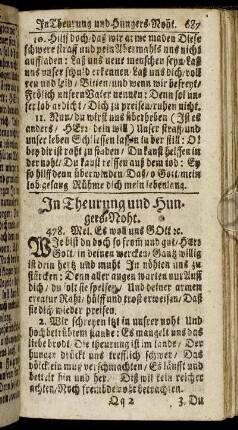 In Theurung und Hungers-Noht. 687
10. Hilff doch, daß wir arme maden Diese
schwere straff und pein Abermahls uns nicht
auffladen: Laß uns neue menschen seyn Laß
uns unser sünd erkennen Laß uns dich, voll
reu und leid, Bitten, und wenn wir befreyt,
Frölich unsern Vater nennen: Denn sol un-
ser lob ardicht, Dich zu preisen, ruhen nicht.
11. Nun, du wirst uns überheben (Ist es
anders, HErr dein will) Unser straff, und
unser leben Schliessen in der still: O!
bey dir ist raht zu finden, Du kanst helffen in
der noht, Du kanst reissen aus dem tod: Ey
so hilff denn überwinden Daß, o Gott, mein
lob gesang Rühme dich mein lebenlang.
In Theurung und Hun-
gers-Noht.
478. Mel. Es woll uns GOtt ꝛc.
WIe bist du doch so from und gut, HErr
Gott, in deinen wercken, Gantz willig
ist dein hertz und muht In nöhten uns zu
stärcken: Denn aller augen warten nur Auff
dich, du solt sie speisen, Und deiner armen
creatur Raht, hülff und trost erweisen, Daß
sie dich wieder preisen.
2. Wir schreyen itzt in unsrer noht Und
hochbetrübtem stande: Es mangelt uns das
liebe brodt, Die theurung ist im lande, Der
hunger drückt uns trefflich schwer, Das
völcklein muß verschmachten, Es läufft und
bettelt hin und her, Diß wil kein reicher
achten, Noch frembde noht betrachten.
Qq 2 3. Du